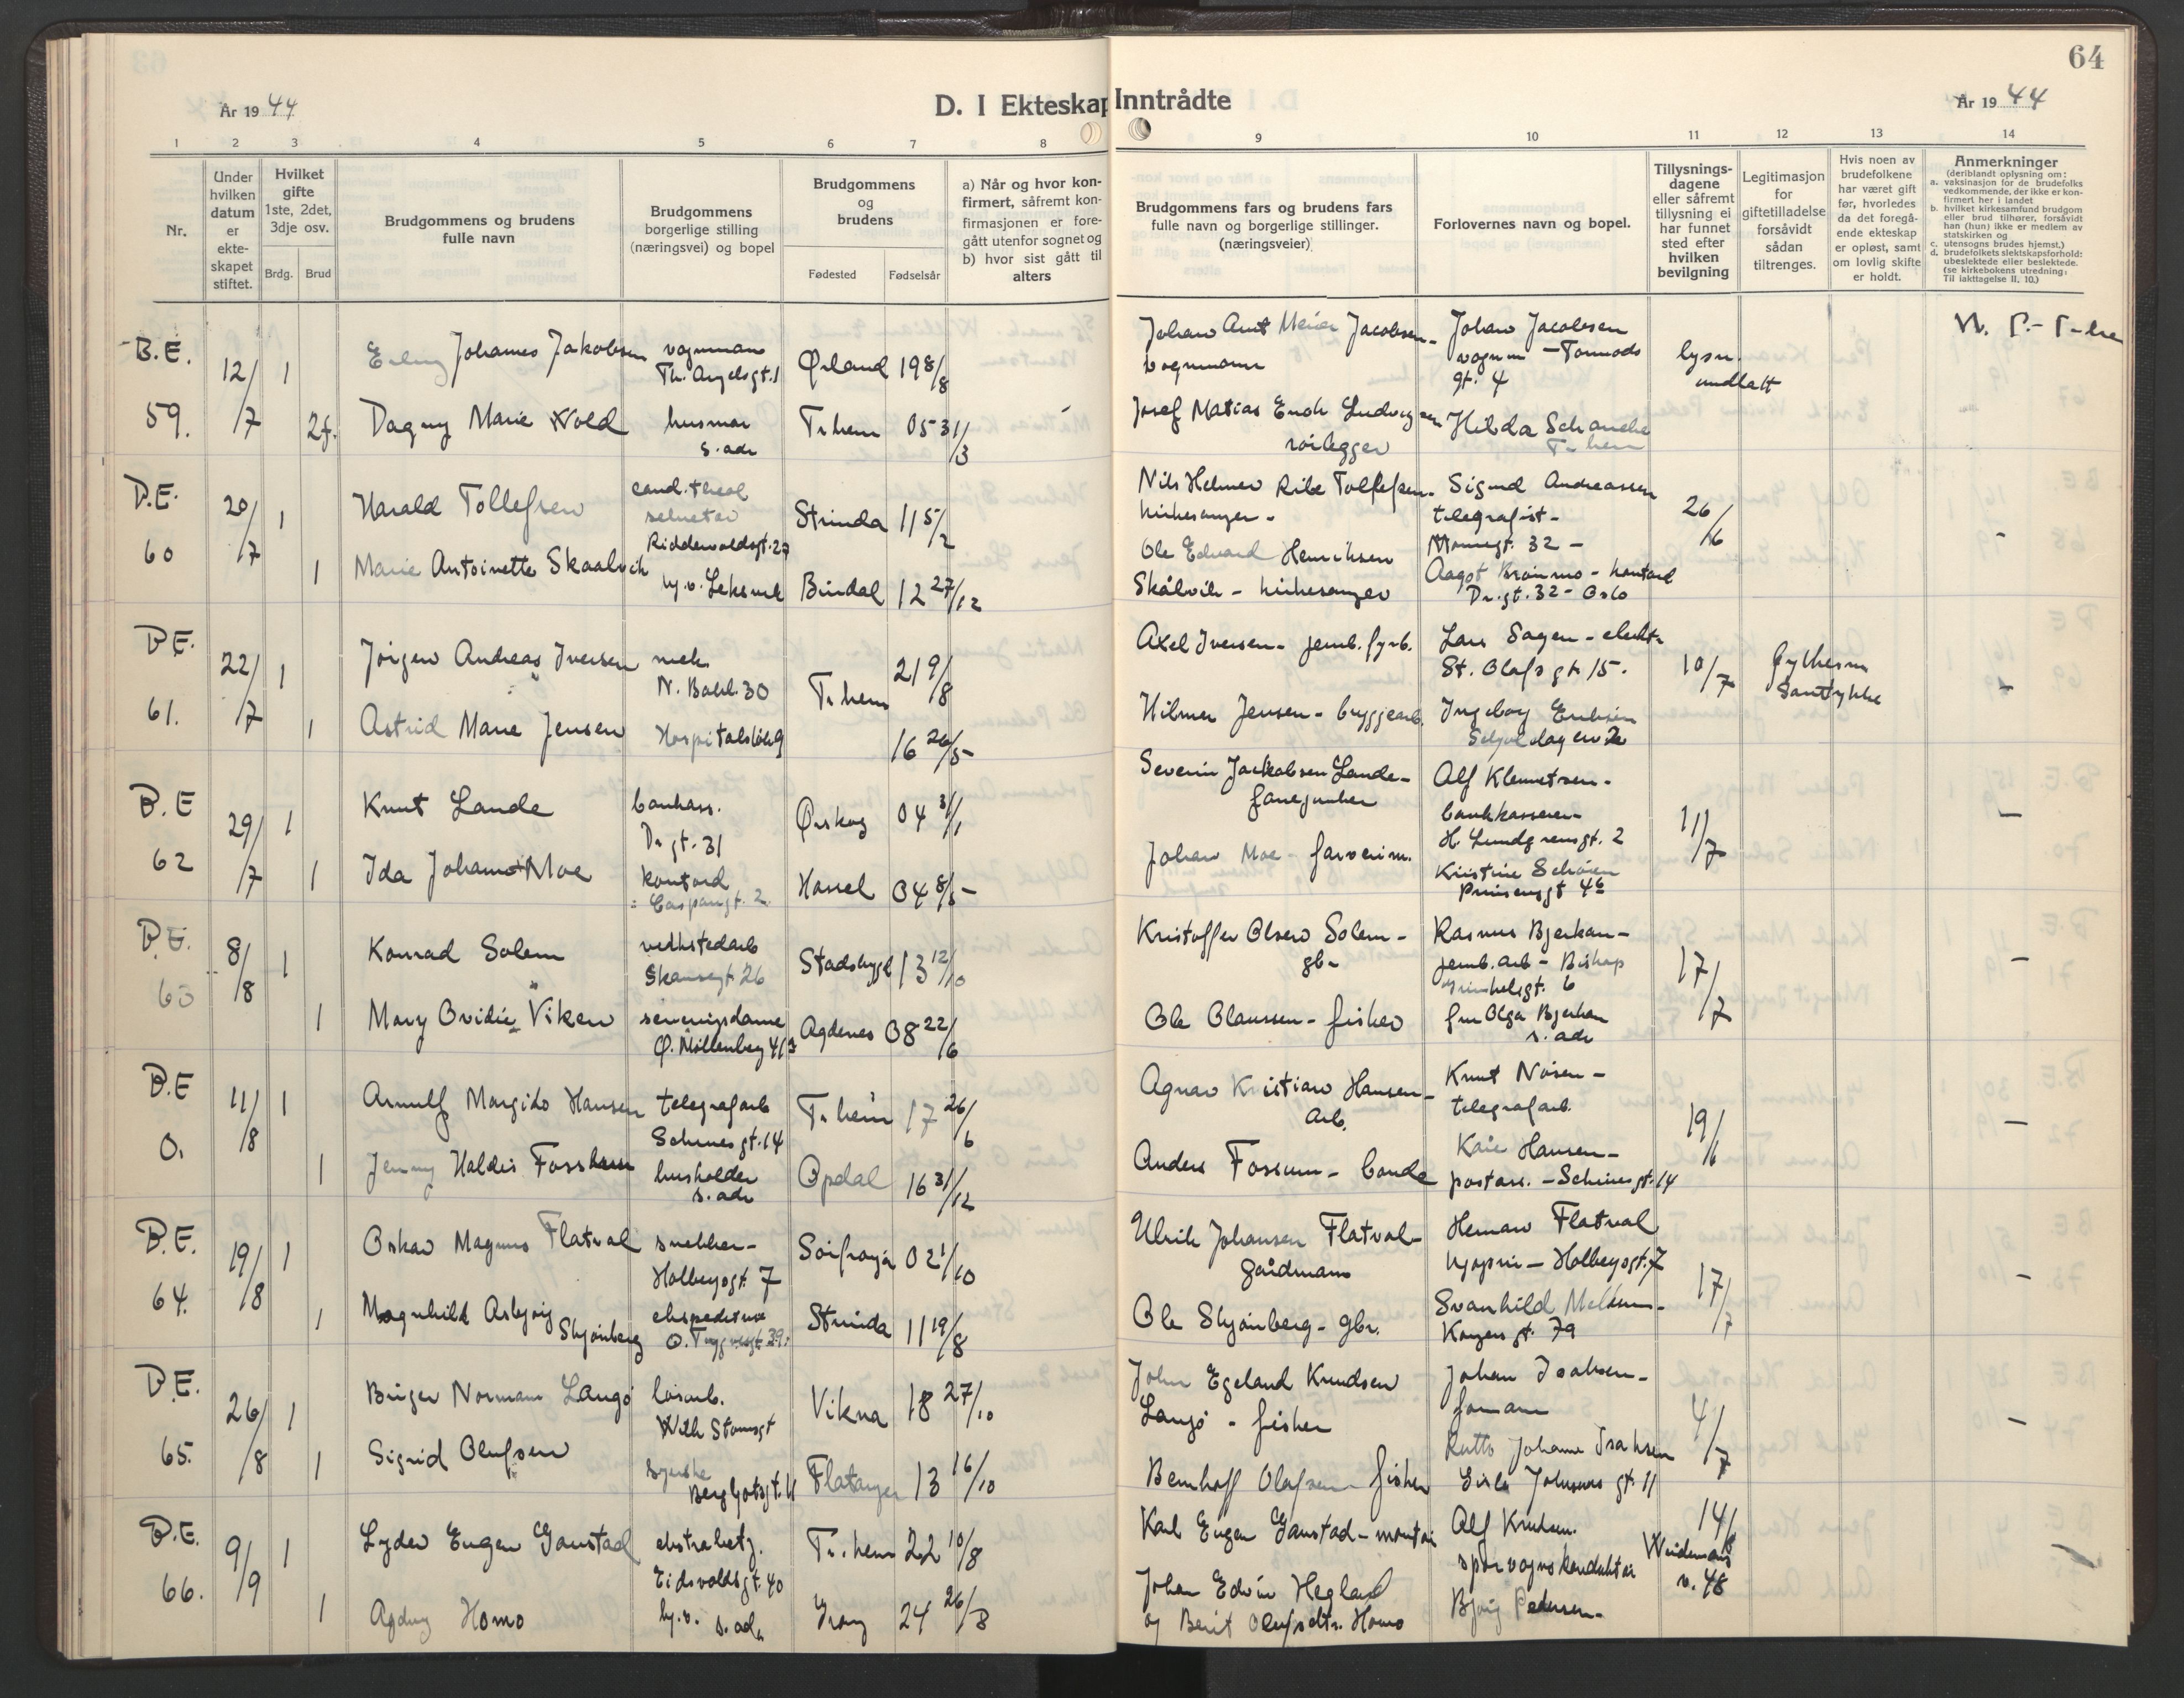 64
År 1944
D. I Ekteskap Inntrådte
År 1944
1 2 3 4 5 6 7 8 9 10 11 12 13 14
Nr.
Under hvilken datum er ekte-skapet stiftet.
Hvilket gifte 1ste, 2det, 3dje osv.
Brdg. Brud
Brudgommens og brudens fulle navn
Brudgommens borgerlige stilling (næringsvei) og bopel
Brudgommens og brudens
Fødested Fødselsår
a) Når og hvor kon-
firmert, såfremt kon-
firmasjonen er fore-
gått utenfor sognet og
b) hvor sist gått til
alters
Brudgommens fars og brudens fars
fulle navn og borgerlige stillinger.
(næringsveier)
Forlovernes navn og bopel.
Tillysnings-
dagene
eller såfremt
tillysning ei
har funnet
sted efter
hvilken
bevilgning
Legitimasjon
for
giftetilladelse
forsåvidt
sådan
tiltrenges.
Hvis noen av
brudefolkene
har været gift
før, hvorledes
da det foregå-
ende ekteskap
er opløst, samt
om lovlig skifte
er holdt.
Anmerkninger
(deriblandt oplysning om:
a. vaksinasjon for de brudefolks
vedkommende, der ikke er kon-
firmert her i landet
b. hvilket kirkesamfund brudgom
eller brud tilhører, forsåvidt
han (hun) ikke er medlem av
statskirken og
c. utensogns brudes hjemst.)
d. brudefolkets slektskapsforhold:
ubeslektede eller beslektede.
(se kirkebokens utredning:
Til iakttagelse II. 10.)
B.E. 12/7 1 Erling Johannes Jakobsen vognmann Ørland 19 8/8 Johan Arnt Meier Jacobsen- Johan Jacobsen lysn.
Th. Angelsgt. 1 vognmann vognm - Tormods undlatt
gt. 4
59. 2g. Dagny Marie Wold husmor Tr.heim 05 31/3 Josef Matias Enok Ludvigsen Hilda Schanche
s. adr rørlegger Tr.heim
B.E. 20/7 1 Harald Tollefsen cand. theol Strinda 11 5/2 Nils Helmer Tollefsen- Sigurd Andreassen 26/6
Riddervoldsgt. 27 kirkesanger - telegrafist -
32 -
60 1 Marie Antoinette Skaalvik hj.v. Leksvik Bindal 12 27/12 Ole Edvard Henriksen Aagot - kontord
Skålvik - kirkesanger Dr. gt. 32 - Oslo
B.E. 22/7 1 Jørgen Andreas Iversen mek. Tr.heim 21 9/8 Axel Iversen - jernb. fyrb. Lars Sagen - elektr 10/7
N. Bakl. 30 St. Olafs gt 15. Samtykke
61. 1 Astrid Marie Jensen 16 26/5 Hilmer Jensen - bryggearb. Ingeborg Eriksen
B.E 29/7 1 Knut Lande bankass. Ørskog 04 31/1 Severin Jackobsen Lande - Alf Klemetsen - 11/7
Dr gt. 31 fanejunker bankkasserer
H. Lundgreensgt. 2
62 1 Ida Johanne Moe kontord Hassel 04 8/5 Johan Moe - garverim. Kristine Schøien
Prinsensgt 4b
B.E. 8/8 1 Konrad Solem verkstedarb Stadsbygd 13 12/10 Kristoffer Olsen Solem - Rasmus Bjerkan - 17/7
Skansegt 26 gbr jernb. arb - Biskop
gt. 6
63 1 Mary Ovidie Viken serveringsdame Agdenes 08 22/6 Ole Olaussen - fisker fru Olga Bjerkan
Ø. Møllenberg 41 s. adr
B.E 11/8 1 Arnulf Margido Hansen telegrafarb Tr.heim 17 26/6 Agnar Kristian Hansen - Knut Nøsen - 19/6
Schives gt. 14 arb. telegrafarb.
0. 1 Jenny Haldis Fossum husholder Opdal 16 31/12 Anders Fossum - bonde Kaie Hansen -
s. adr postass. - Schives gt. 14
B.E. 19/8 1 Oskar Magnus Flatval snekker - Sørfrøya 02 1/10 Ulrik Johansen Flatval - Herman Flatval 17/7
Holbergsgt. 7 gårdmann kjøpm - Holbergsgt. 7
64. 1 Magnhild Asbjørg Skjønberg ekspeditrise Strinda 11 19/8 Ole Skjønberg - gbr. Svanhild
O. Tryggvesgt 39 Kongens gt. 79
B.E. 26/8 1 Birger Norman Langø løsarb. Vikna 18 27/10 John Egeland Knudsen Johan Isaksen - 4/7
Wilh Stormsgt Langø - fisker formann
65. 1 Sigrid Olufsen syerske Flatanger 13 16/10 Bernhoff Olafsen fisker Ruth Johanne Isaksen
Bergljotsgt. 11 gt. 11
B.E. 9/9 1 Lyder Eugen Gaustad ekstrabetj. Tr.heim 22 10/8 Karl Eugen Gaustad - montør Alf Knudsen. 14/8
Eidsvoldsgt. 40 sporvognskonduktør Weidemans v. 48
66. 1 Agdny Homo hj.v. s. adr Grong 24 26/8 Johan Edvin Hegland Bjørg Pedersen -
og Berit Olufsdtr. Homo